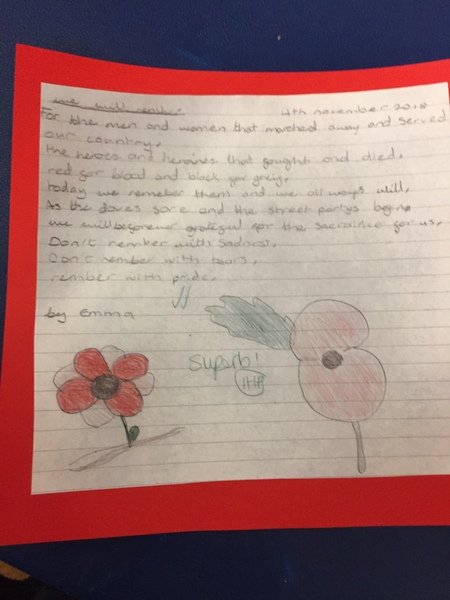 we will remember
11th november 2018
For the men and women that marched away and served
our country,
the heroes and heroines that fought and died,
red for blood and black for greif,
today we remeber them and we all ways will,
As the doves sore and the street partys begin
we will beforever grateful for the sacraifice for us,
Don't rember with Sadness,
Don't rember with tears,
rember with pride,
by Emma
Superb!
1HP